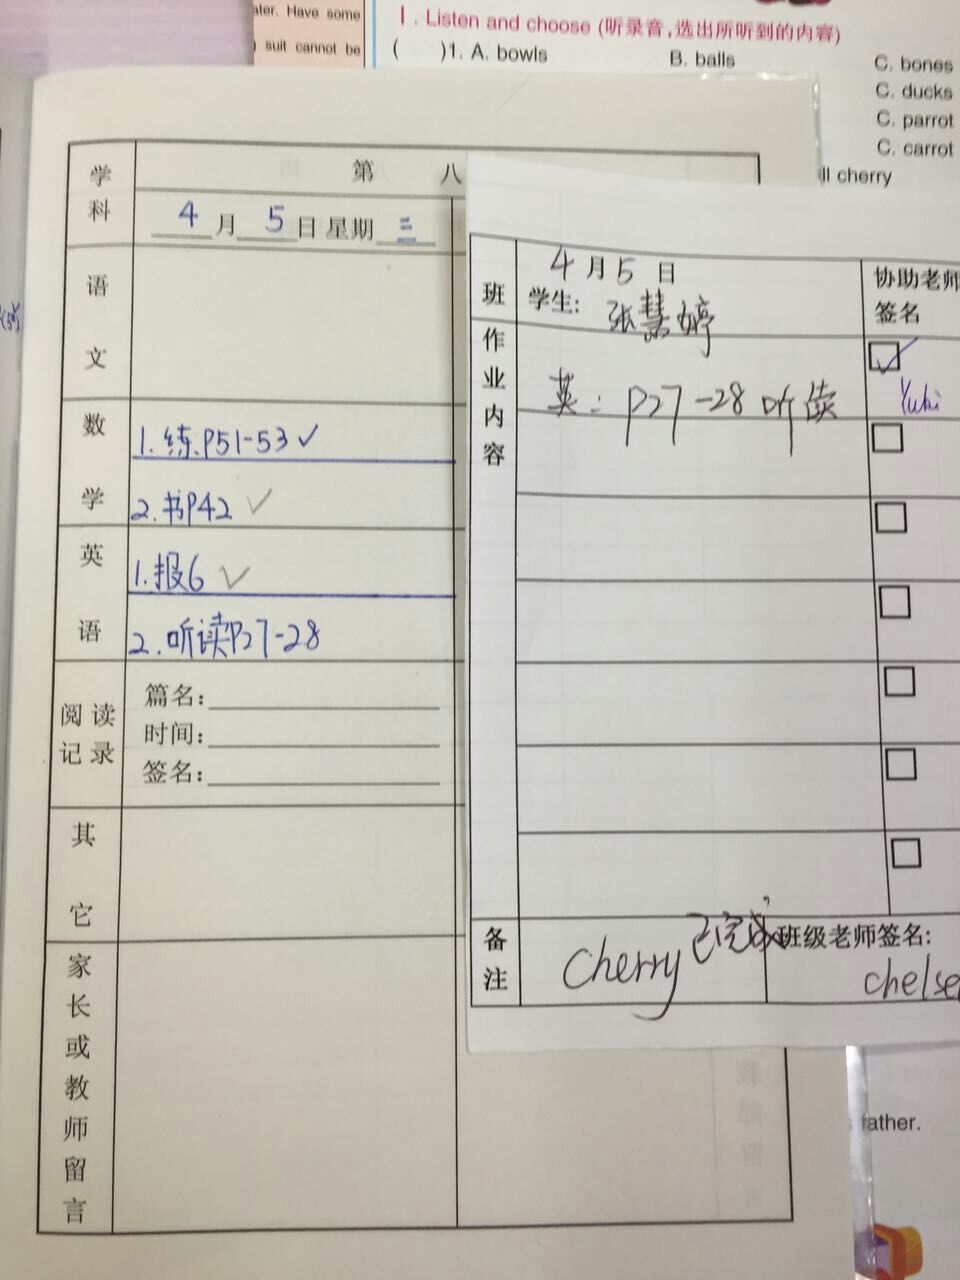 ater. Have some
suit cannot be
Ⅰ. Listen and choose (听录音,选出所听到的内容)
( )1. A. bowls B. balls C. bones
C. ducks
C. parrot
C. carrot
ll cherry
学科
第 八
4月5日星期三
语文
数学
1.练P51-53✓
2.书P42 ✓
英语
1.报6 ✓
2.听读P27-28
阅读记录
篇名:
时间:
签名:
其它
家长或教师留言
班
4月5日
学生: 张慧婷
协助老师
签名
作业内容
英: P27-28 听读
Yuki
备注
Cherry 已完成
班级老师签名:
chelse
father.